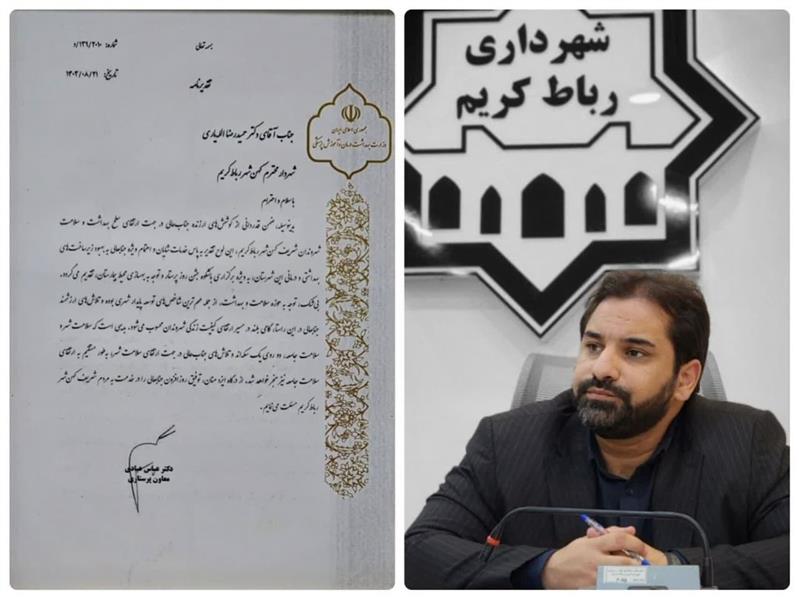 بسمه تعالی
شماره: ۱۳۹/۲۰۱۰/د
تاریخ: ۱۴۰۳/۰۸/۲۱
تقدیرنامه
جمهوری اسلامی ایران
وزارت بهداشت درمان و آموزش پزشکی
جناب آقای دکتر حمیدرضا الهیاری
شهردار محترم کهن شهر رباط کریم
با سلام و احترام
بدینوسیله، ضمن قدردانی از کوشش‌های ارزنده جنابعالی در جهت ارتقای سطح بهداشت و سلامت
شهروندان شریف کهن شهر رباط کریم، این لوح تقدیر به پاس خدمات شایان و اهتمام ویژه جنابعالی به بهبود زیرساخت‌های
بهداشتی و درمانی این شهرستان، به ویژه برگزاری باشکوه جشن روز پرستار و توجه به بهسازی محیط بیمارستان، تقدیم می‌گردد.
بی‌شک، توجه به حوزه سلامت و بهداشت، از جمله مهم‌ترین شاخص‌های توسعه پایدار شهری بوده و تلاش‌های ارزشمند
جنابعالی در این راستا، گامی بلند در مسیر ارتقای کیفیت زندگی شهروندان محسوب می‌شود. بدیهی است که سلامت شهر و
سلامت جامعه، دو روی یک سکه‌اند و تلاش‌های جنابعالی در جهت ارتقای سلامت شهر، به طور مستقیم به ارتقای
سلامت جامعه نیز منجر خواهد شد. از درگاه ایزد منان، توفیق روزافزون جنابعالی را در خدمت به مردم شریف کهن شهر
رباط کریم مسئلت می‌نمایم.
دکتر عباس عبادی
معاون پرستاری
شهرداری
رباط کریم